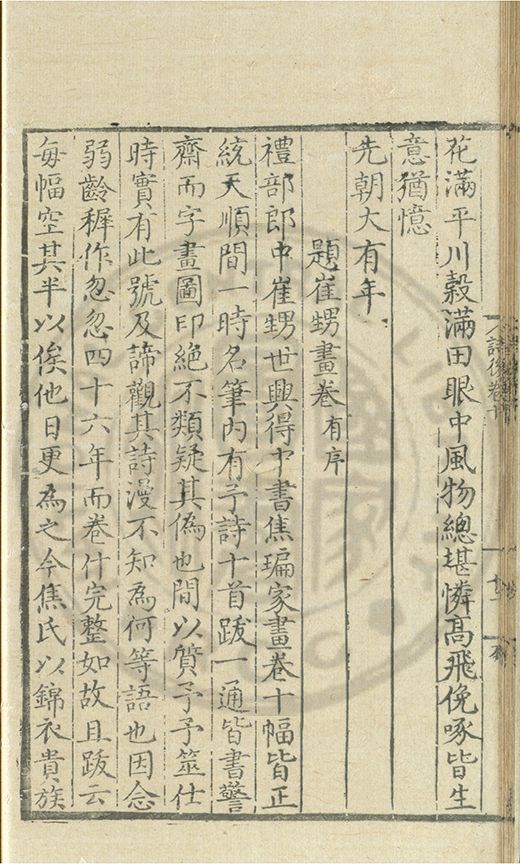 花滿平川穀滿田眼中風物總堪憐高飛俛啄皆生
意猶憶
先朝大有年
題崔甥畫卷有序
禮部郎中崔甥世興得中書焦瑞家畫卷十幅皆正
統天順間一時名筆內有予詩十首跋一通皆書警
齋而字畫圖印絕不類疑其偽也間以質予予筮仕
時實有此號及諦觀其詩漫不知為何等語也因念
弱齡穉作忽忽四十六年而卷什完整如故且跋云
每幅空其半以俟他日更為之今焦氏以錦衣貴族
詩後卷十